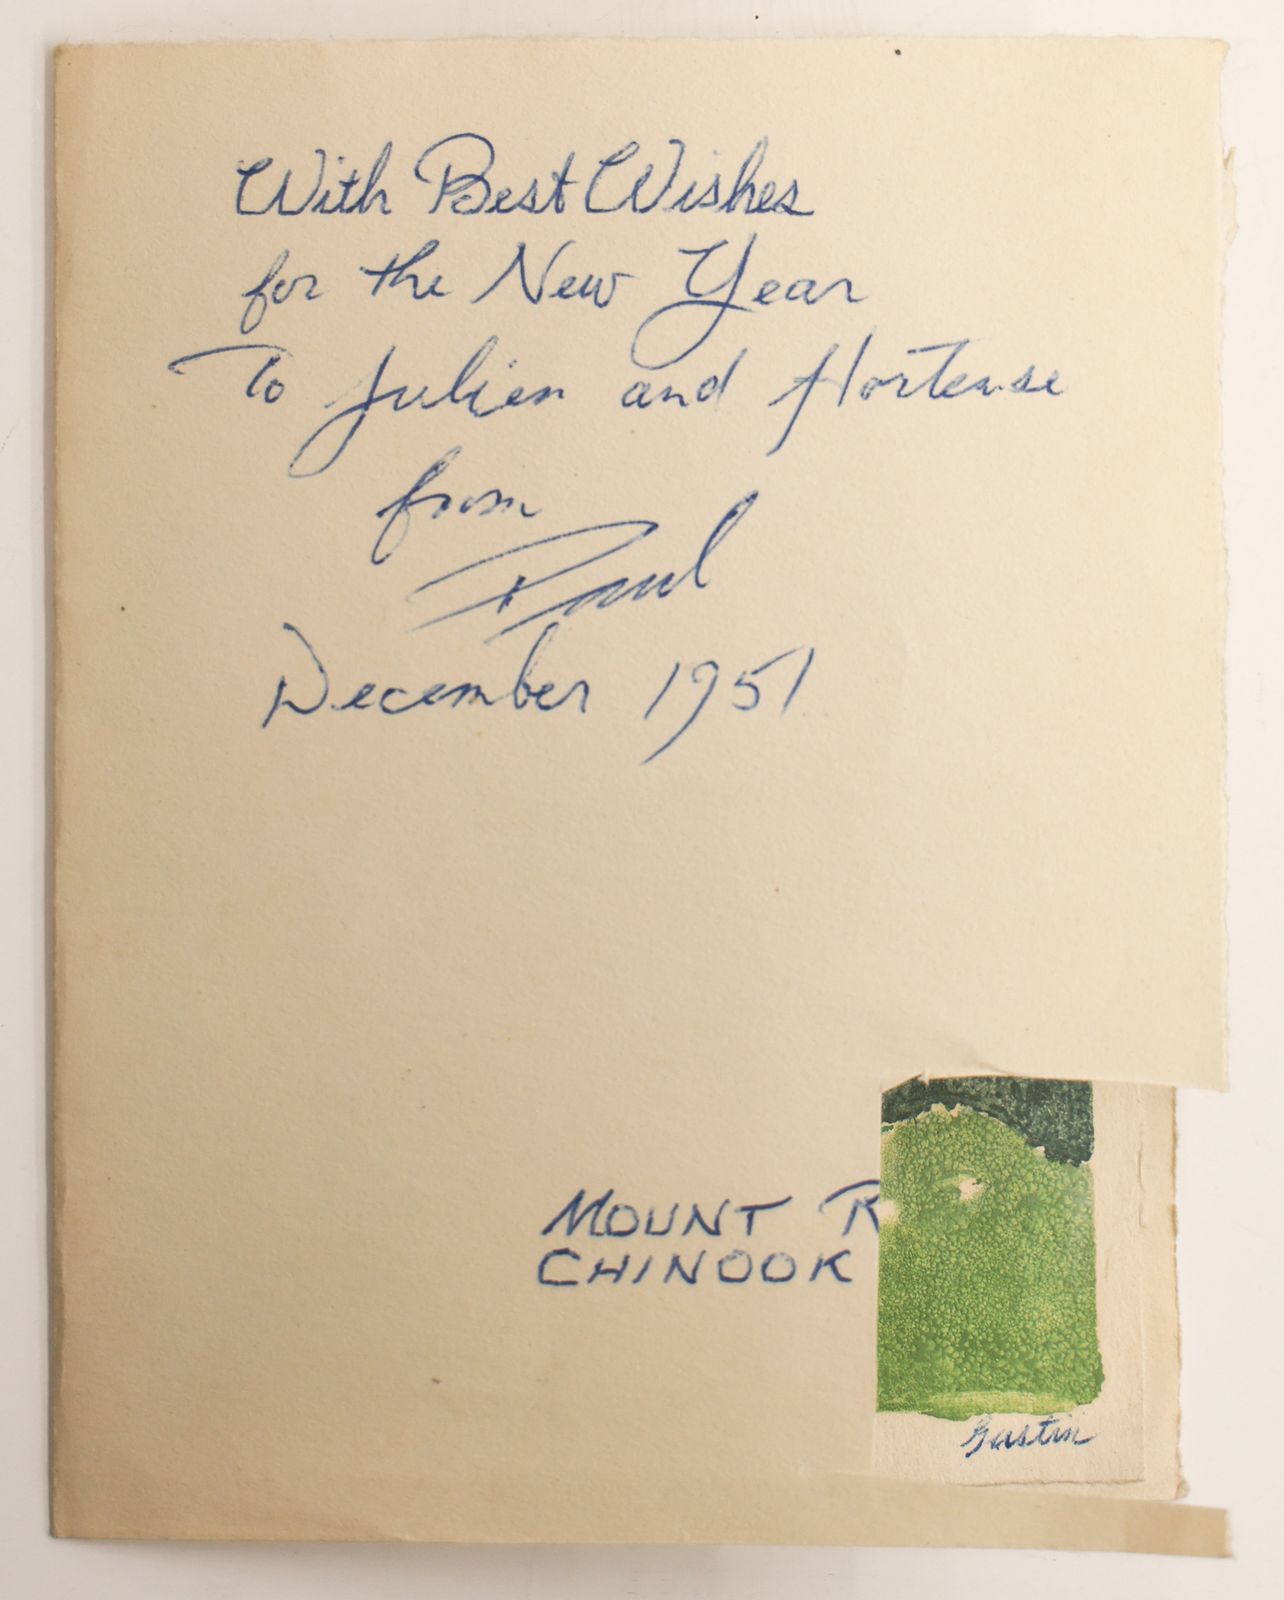 With Best Wishes
for the New Year
To Julien and Hortense
from
Paul
December 1951
MOUNT R
CHINOOK
Gustin